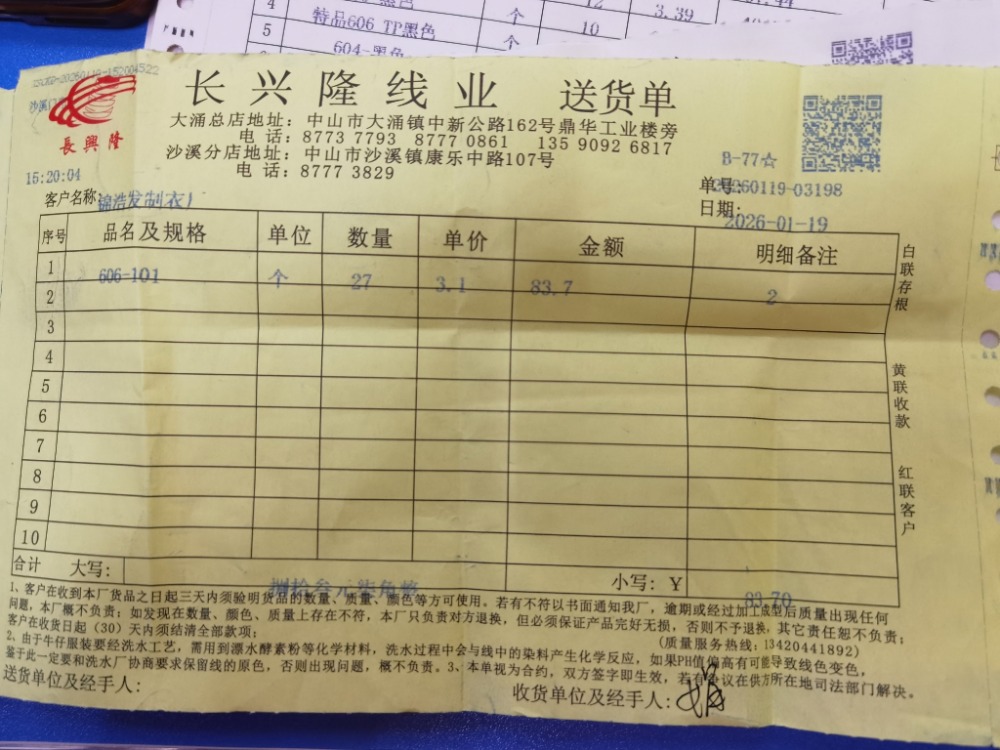 黑色
12
4
特品606 TP黑色
个
10
3.39
5
604-黑色
个
沙溪门
長興隆
长兴隆线业 送货单
大涌总店地址：中山市大涌镇中新公路162号鼎华工业楼旁
电 话：8773 7793 8777 0861 135 9092 6817
沙溪分店地址：中山市沙溪镇康乐中路107号
电 话：8777 3829
15:20:04
B-77☆
单号：20260119-03198
客户名称：锦浩发制衣厂
日期：2026-01-19
序号 品名及规格 单位 数量 单价 金额 明细备注
1 606-101 个 27 3.1 83.7 2
2
3
4
5
6
7
8
9
10
白联存根
黄联收款
红联客户
合计 大写： 捌拾叁元柒角整 小写：¥ 83.70
1、客户在收到本厂货品之日起三天内须验明货品的数量、质量、颜色等方可使用。若有不符以书面通知我厂，逾期或经过加工成型后质量出现任何
问题，本厂概不负责；如发现在数量、颜色、质量上存在不符，本厂只负责对方退换，但必须保证产品完好无损，否则不予退换，其它责任恕不负责；
客户在收货日起（30）天内须结清全部款项； （质量服务热线：13420441892）
2、由于牛仔服装要经洗水工艺，需用到漂水酵素粉等化学材料，洗水过程中会与线中的染料产生化学反应，如果PH值偏高有可能导致线色变色，
鉴于此一定要和洗水厂协商要求保留线的原色，否则出现问题，概不负责。3、本单视为合约，双方签字即生效，若有争议在供方所在地司法部门解决。
送货单位及经手人：
收货单位及经手人：